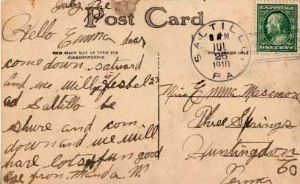 Post Card
Hello Emma dear
THIS SPACE MAY BE USED FOR
CORRESPONDENCE
come down
and we will
ad Saltillo be
shure and com
down and we will
have lots of fun good
from
SALTILLO
8 AM
JUL
26
1910
PA.
Miss Emma
Three Springs
Huntingdon
Co
Penna
ONE CENT